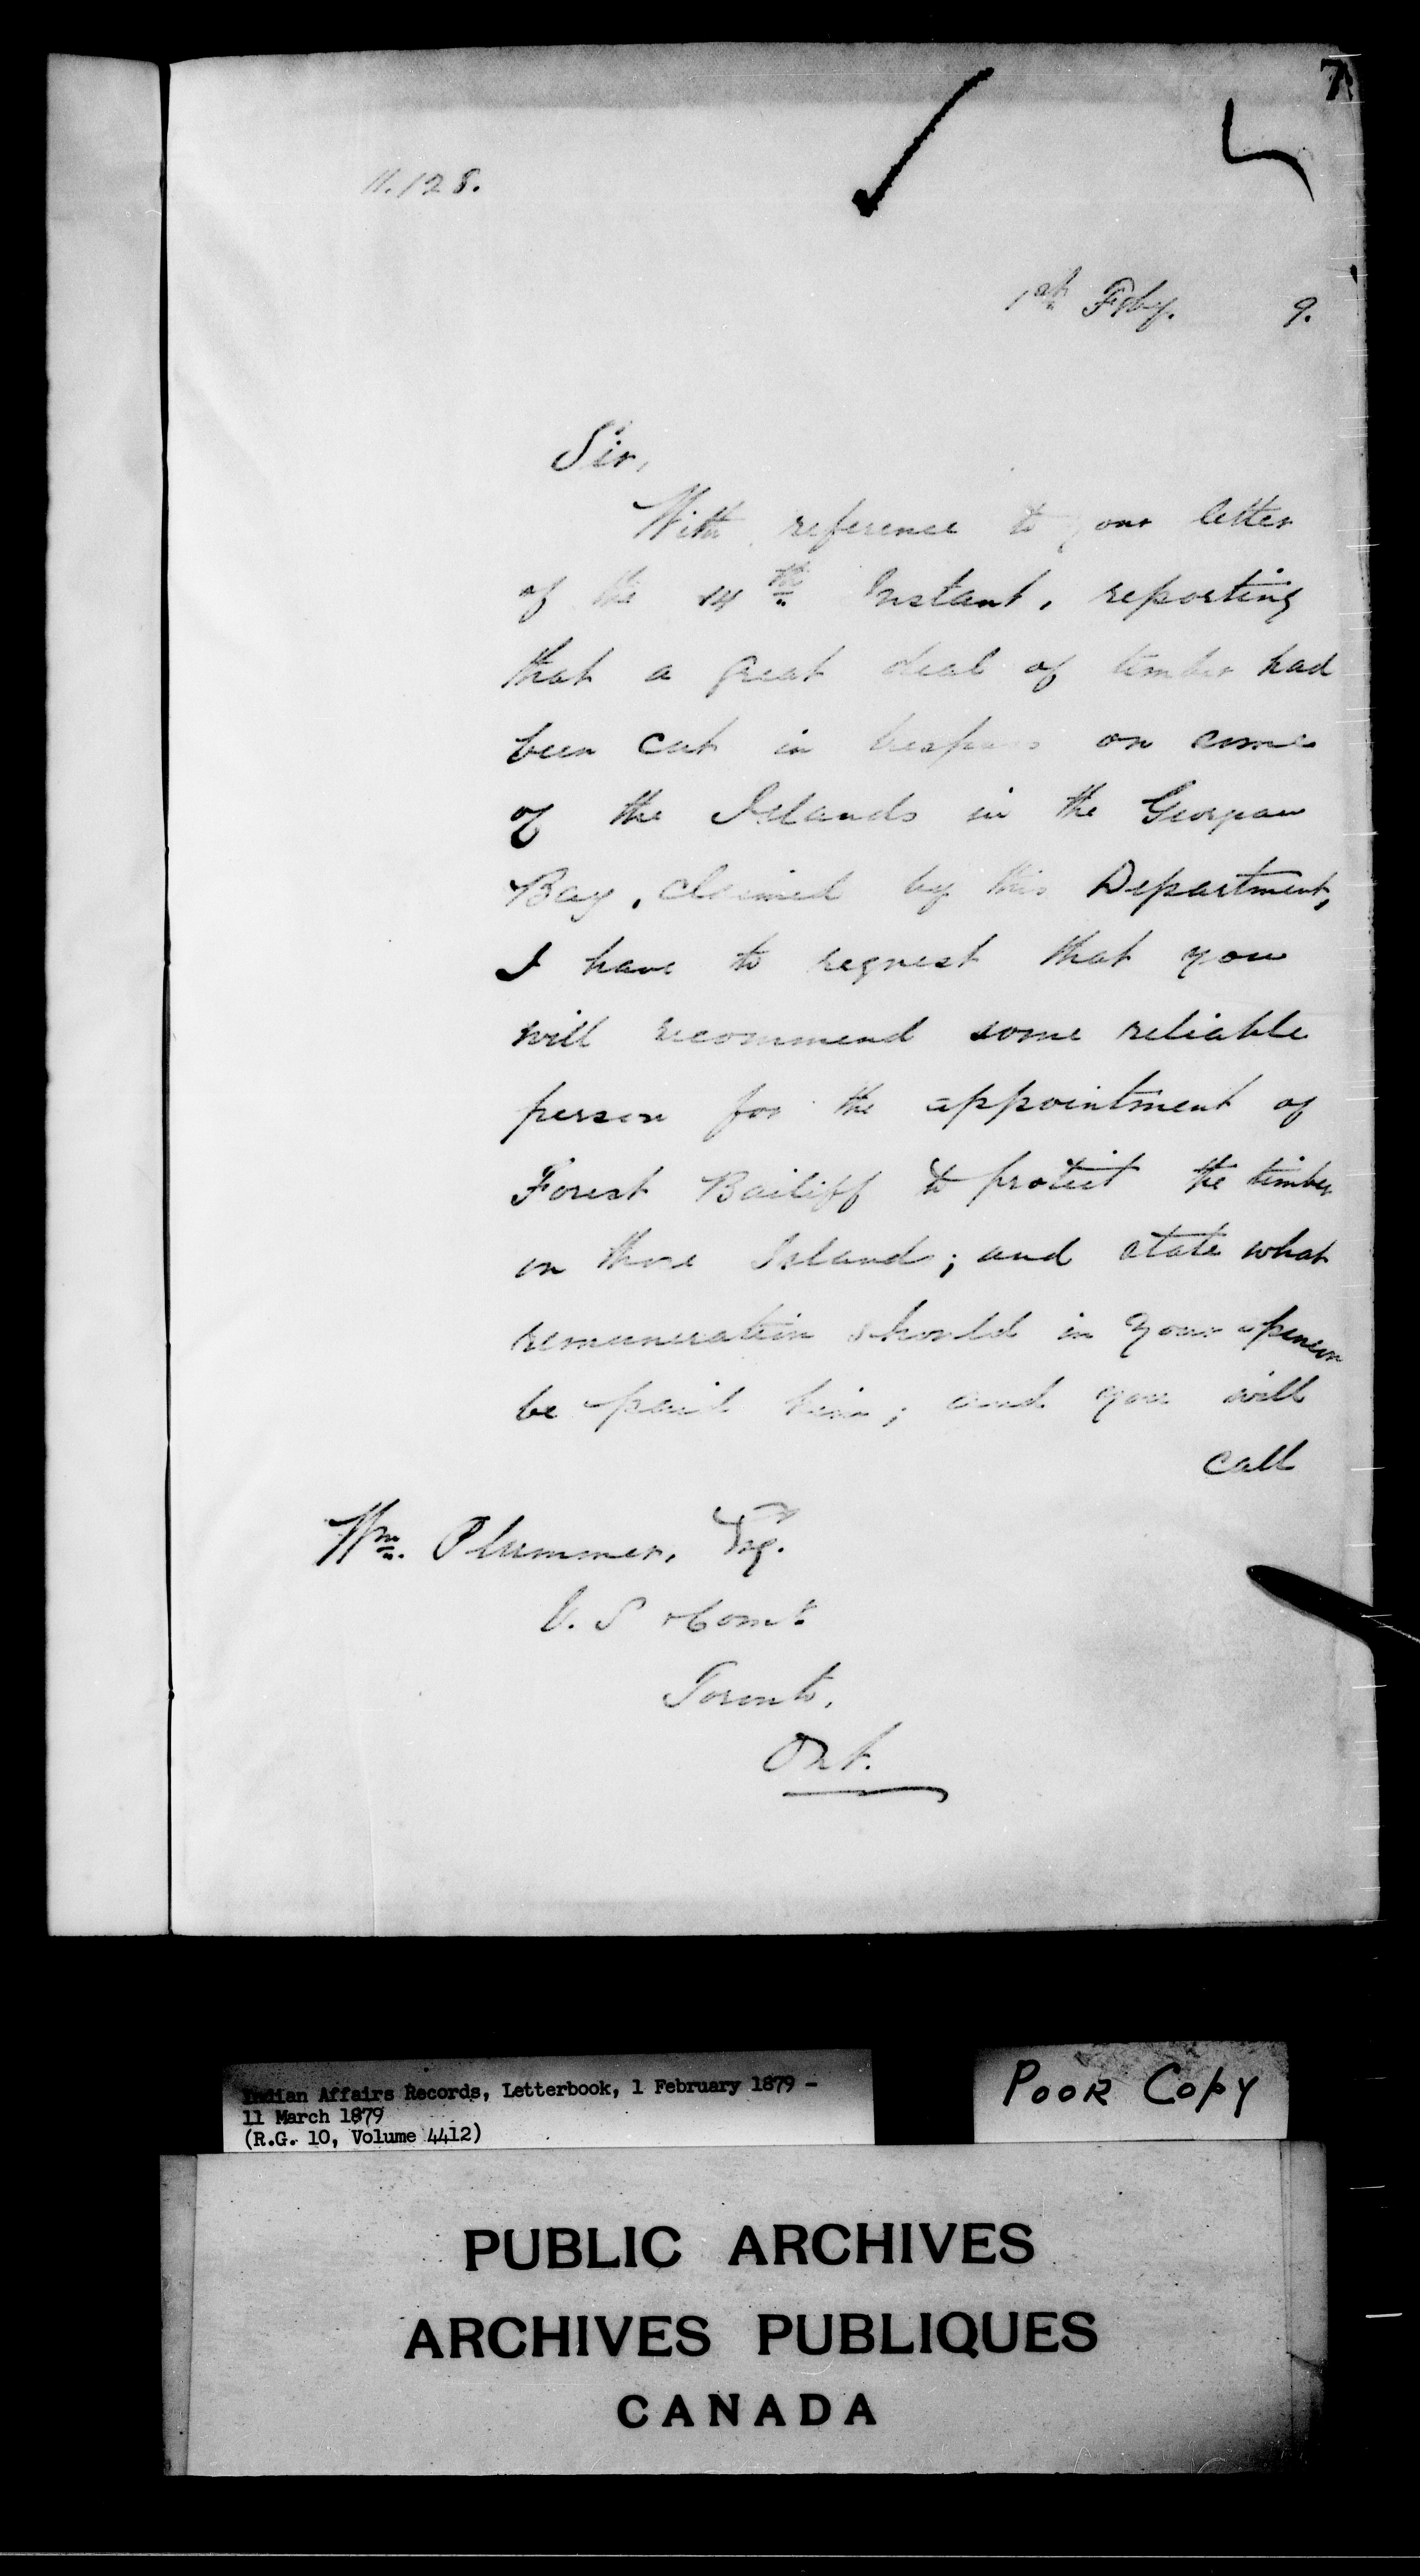 7
11.128.
1st Feby. 9.
Sir,
With reference to your letter
of the 14th Instant, reporting
that a great deal of timber had
been cut in trespass on some
of the Islands in the Georgian
Bay, claimed by this Department,
I have to request that you
will recommend some reliable
person for the appointment of
Forest Bailiff to protect the timber
on those Island; and state what
remuneration should in your opinion
be paid him; and you will
call
Wm. Plummer, Esq.
V. S & Comr
Toronto,
Ont.
Indian Affairs Records, Letterbook, 1 February 1879 -
11 March 1879
(R.G. 10, Volume 4412)
POOR COPY
PUBLIC ARCHIVES
ARCHIVES PUBLIQUES
CANADA